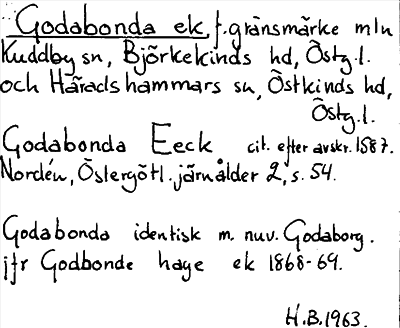 Godabonda ek, f. gränsmärke mln
Kuddby sn, Björkekinds hd, Östg.l.
och Häradshammars sn, Östkinds hd,
Östg.l.
Godabonda Eeck cit. efter avskr. 1587.
Nordén, Östergötl. järnålder 2, s. 54.
Godabonda identisk m. nuv. Godaborg.
jfr Godbonde hage ek 1868-69.
H.B. 1963.